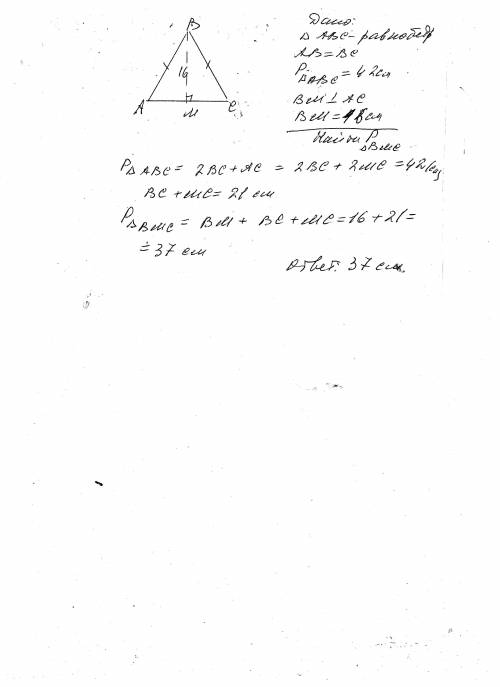 Дано:
B
Δ ABC - равнобедр
AB = BC
P ΔABC = 42 см
16
BM ⊥ AC
A M C
BM = 16 см
Найти P ΔBMC
P ΔABC = 2BC + AC = 2BC + 2MC = 42 см,
BC + MC = 21 см
P ΔBMC = BM + BC + MC = 16 + 21 =
= 37 см
Ответ: 37 см.